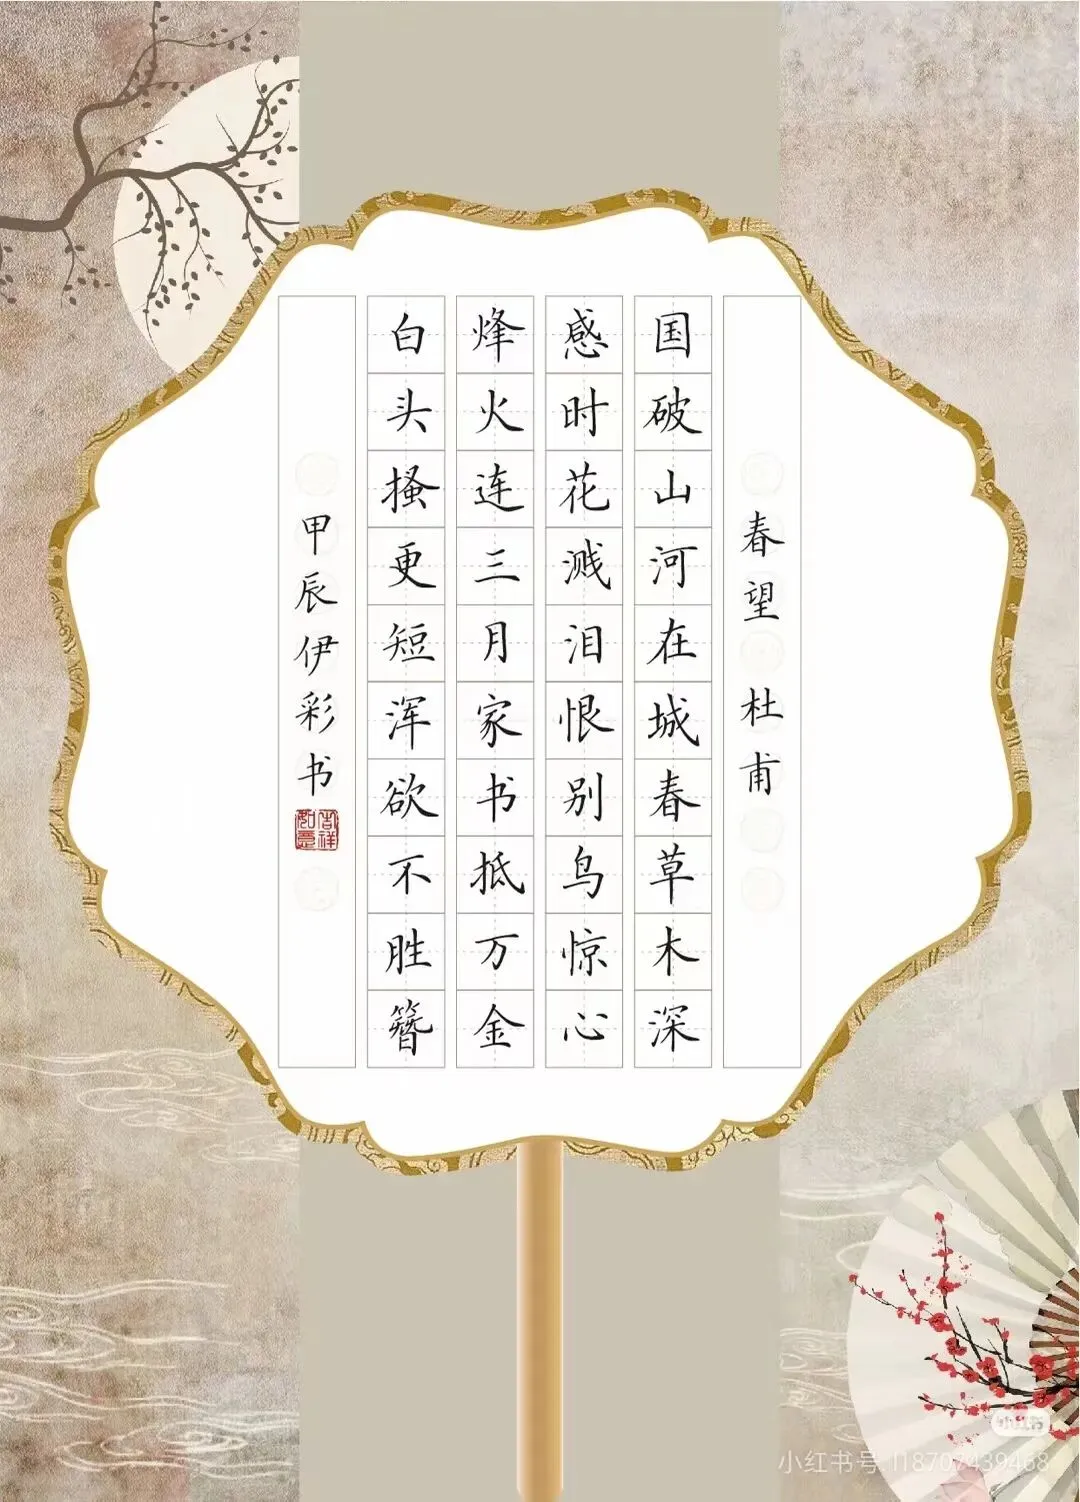 春望 杜甫
国破山河在城春草木深
感时花溅泪恨别鸟惊心
烽火连三月家书抵万金
白头搔更短浑欲不胜簪
甲辰伊彩书
吉祥如意
小红书
小红书号 118707439468